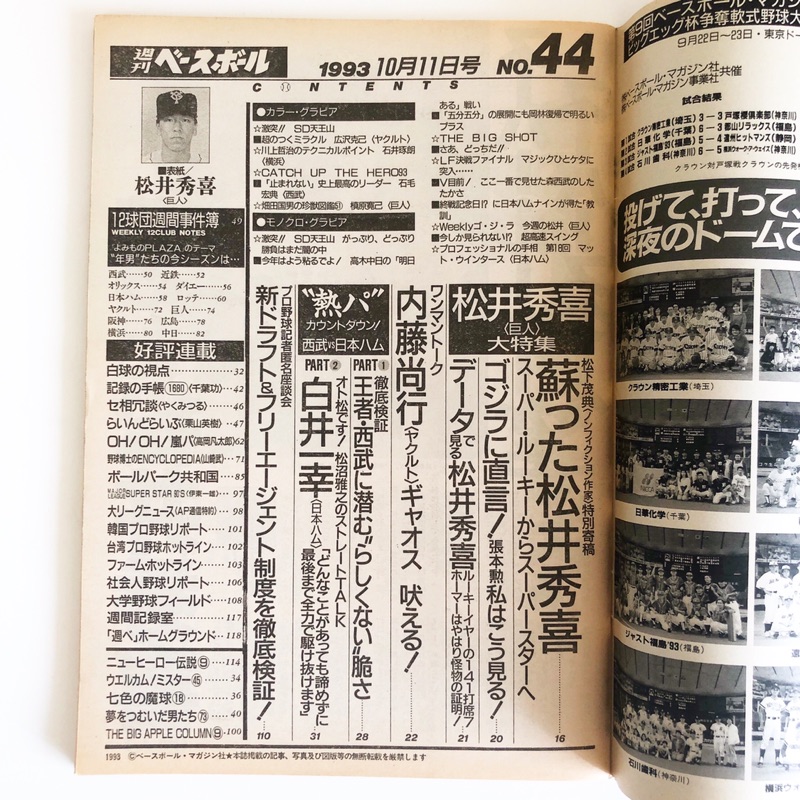 週刊ベースボール
1993 10月11日号 NO.44
CONTENTS
■表紙／
松井秀喜
〈巨人〉
12球団週間事件簿 49
WEEKLY 12CLUB NOTES
"よみものPLAZA"のテーマ
"年男"たちの今シーズンは…
西武……50 近鉄……52
オリックス……54 ダイエー……56
日本ハム……58 ロッテ……60
ヤクルト……72 巨人……74
阪神……76 広島……78
横浜……80 中日……82
好評連載
白球の視点……32
記録の手帳(1680)〈千葉功〉……42
セ相冗談〈やくみつる〉……46
らいんどらいぶ〈栗山英樹〉……47
OH！OH！嵐パ〈高岡凡太郎〉62
野球博士のENCYCLOPEDIA〈山崎武〉…71
ボールパーク共和国……85
MAJOR LEAGUE SUPER STAR 90'S〈伊東一雄〉…97
大リーグニュース〈AP通信特約〉…98
韓国プロ野球リポート……101
台湾プロ野球ホットライン……102
ファームホットライン……103
社会人野球リポート……106
大学野球フィールド……108
週間記録室……117
「週べ」ホームグラウンド……118
ニューヒーロー伝説⑨……114
ウエルカム／ミスター㊺……34
七色の魔球⑱……36
夢をつむいだ男たち(73)……40
THE BIG APPLE COLUMN⑨…100
●カラー・グラビア
☆激突!! SD天王山
■超のつくミラクル 広沢克己〈ヤクルト〉
☆川上哲治のテクニカルポイント 石井琢朗
〈横浜〉
☆CATCH UP THE HERO'93
■「止まれない」史上最高のリーダー 石毛
宏典〈西武〉
☆畑田国男の珍獣図鑑(51) 槙原寛己〈巨人〉
●モノクロ・グラビア
☆激突!! SD天王山 がっぷり、どっぷり
勝負はまだ闇の中
■今年はよう粘るでよ！ 高木中日の「明日
ある」戦い
■「五分五分」の展開にも岡林復帰で明るい
プラス
☆THE BIG SHOT
■さあ、どっちだ!!
☆LF決戦ファイナル マジックひとケタに
突入……
■V目前！ ここ一番で見せた森西武のした
たかさ
■終戦記念日!? に日本ハムナインが得た「教
訓」
☆Weeklyゴ・ジ・ラ 今週の松井〈巨人〉
■今しか見られない!? 超高速スイング
☆プロフェッショナルの手相 第18回 マッ
ト・ウインタース〈日本ハム〉
松井秀喜
〈巨人〉
大特集
松下茂典〈ノンフィクション作家〉特別寄稿
蘇った松井秀喜
スーパー・ルーキーからスーパースターへ
16
ゴジラに直言！ 張本勲 私はこう見る！
20
データで見る松井秀喜 ルーキーイヤーの141打席！
ホーマーはやはり怪物の証明！
21
ワンマントーク
内藤尚行〈ヤクルト〉ギャオス 吠える！
22
"熱パ"
カウントダウン！
西武vs日本ハム
PART①
徹底検証
王者・西武に潜む"らしくない"脆さ
28
PART②
オト松です！ 松沼雅之のストレートTALK
白井一幸〈日本ハム〉「どんなことがあっても諦めずに
最後まで全力で駆け抜けます」
31
プロ野球記者匿名座談会
新ドラフト＆フリーエージェント制度を徹底検証！
110
1993 ©ベースボール・マガジン社★本誌掲載の記事、写真及び図版等の無断転載を厳禁します
第9回ベースボール・マガジン
ビッグエッグ杯争奪軟式野球大
9月22日〜23日・東京ドー
ベースボール・マガジン社
ベースボール・マガジン事業社 共催
試合結果
クラウン精密工業(埼玉) 3－3 戸塚櫻倶楽部(神奈川)
日華化学(千葉) 6－3 郡山リラックス(福島)
ジャスト福島'93(福島) 5－4 遠州ヒットマンズ(静岡)
石川歯科(神奈川) 6－5 横浜ウォーク・ア・ウェイズ(神奈川)
クラウン対戸塚戦クラウンの先発
投げて、打って、
深夜のドームで
クラウン精密工業(埼玉)
日華化学(千葉)
ジャスト福島'93(福島)
石川歯科(神奈川)
横浜ウォ